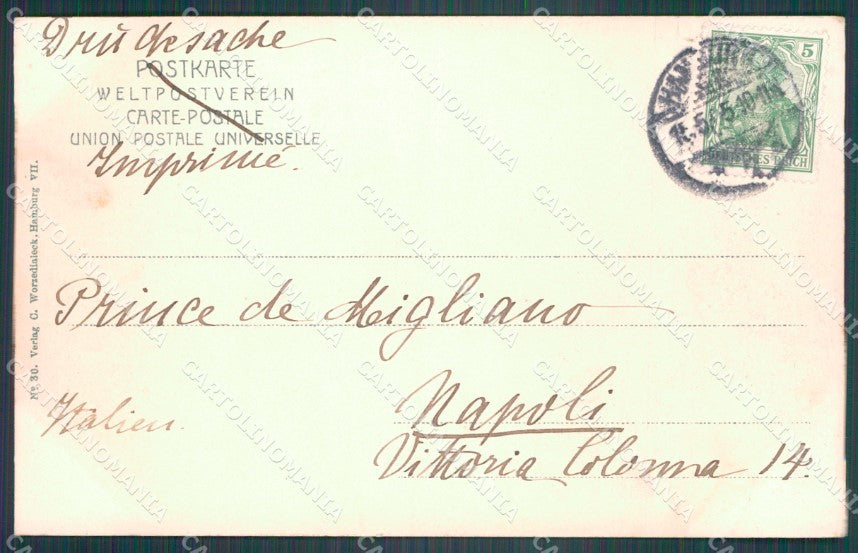 Drucksache
POSTKARTE
WELTPOSTVEREIN
CARTE-POSTALE
UNION POSTALE UNIVERSELLE
Imprimé.
5
Prince de Migliano
Italien.
Napoli
Vittoria Colonna 14.
No. 30. Verlag C. Worzedialeck, Hamburg VII.
CARTOLINOMANIA